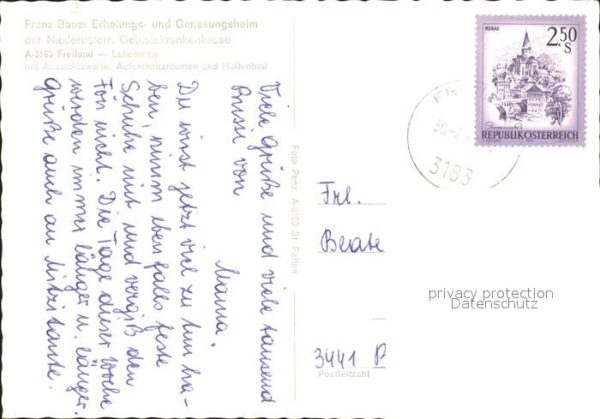 Franz Bauer Erholungs- und Genesungsheim
der Niederösterr. Gebietskrankenkasse
A-3183 Freiland — Lehenrotte
mit Aussichtswarte, Aufenthaltsräumen und Hallenbad
Viele Grüße und viele tausend
Bussi von
Mama.
Du wirst jetzt viel zu tun ha-
ben, nimm ebenfalls feste
Schuhe mit und vergiß den
Fön nicht. Die Tage dieser Woche
werden immer länger u. länger.
Grüße auch an Mitzitante.
Foto Penz, A-3100 St. Pölten
MURAU
2.50
S
REPUBLIK ÖSTERREICH
3183
Frl.
Beate
privacy protection
Datenschutz
3441 P
Postleitzahl